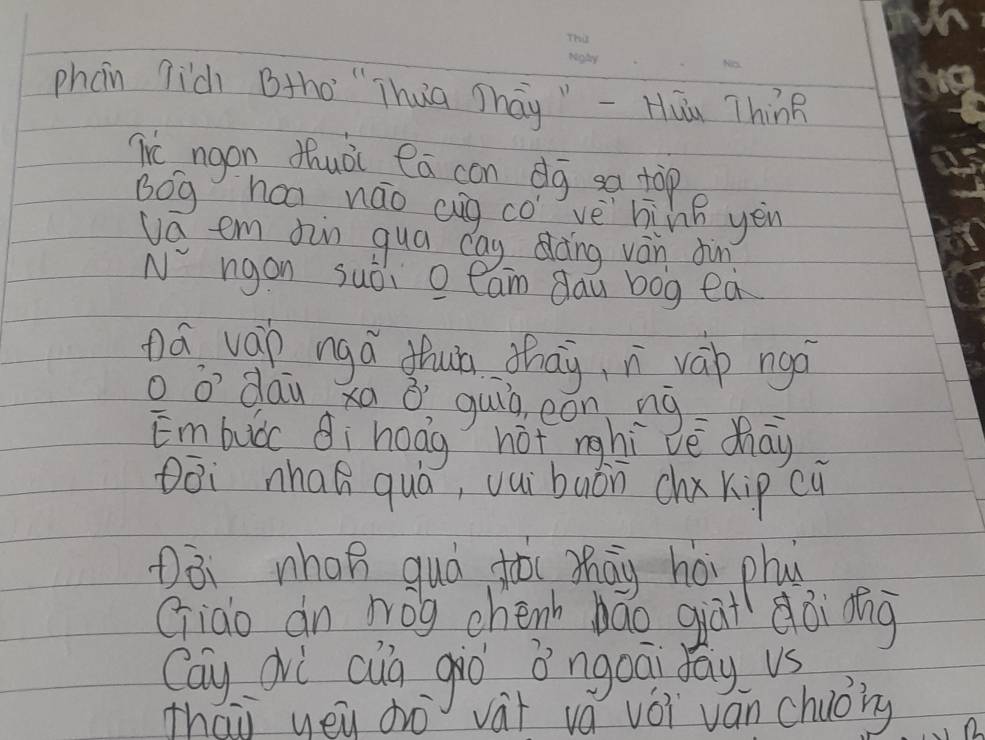 Thứ
Ngày No.
phân Tích Bthơ "Thưa Thầy" - Hữu Thỉnh
Trc ngọn thước lá con đg sa tấp
Bôg hoa nào cũg có vẻ bình yên
Và em xin qua cay đắng vẫn xin
N~ ngọn suối o lấm đau bóg lá
Đã vấp ngã thưa thầy, n~ vấp ngã
O ở đâu xa ở giữa con ng
Em bước đi hoảg hốt nghĩ về thầy
Đời nhah quá, vui buồn chx kịp cũ
Đời nhah quá tóc thầy hói phũ
Giáo án trog chênh bão giật đời thg
Cây trĩ của gió ở ngoài đấy vs
Thầy yêu trò vật vã với văn chương